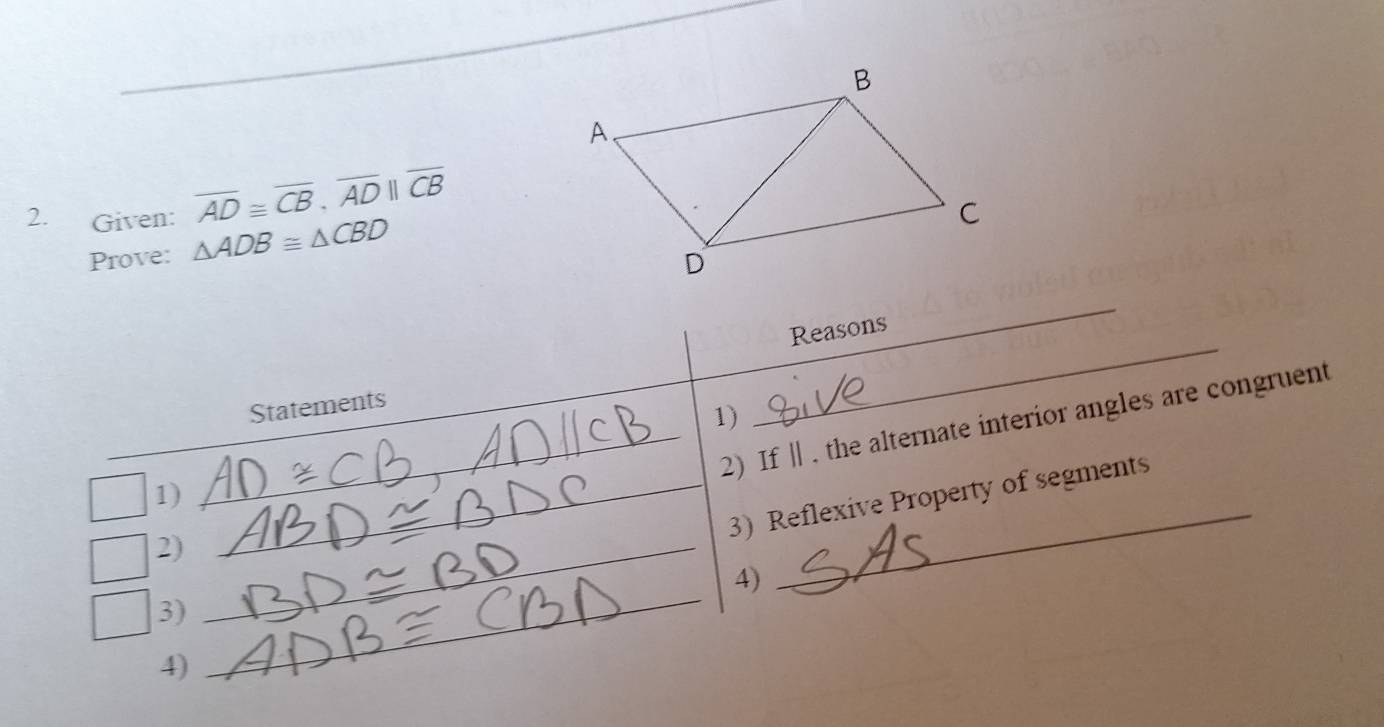 B
A
2. Given: AD ≅ CB , AD || CB
C
Prove: △ADB ≅ △CBD
D
Statements
Reasons
1) AD ≅ CB, AD||CB
1) give
2) ABD ≅ BDC
2) If || , the alternate interior angles are congruent
3) BD ≅ BD
3) Reflexive Property of segments
4) ADB ≅ CBD
4) SAS